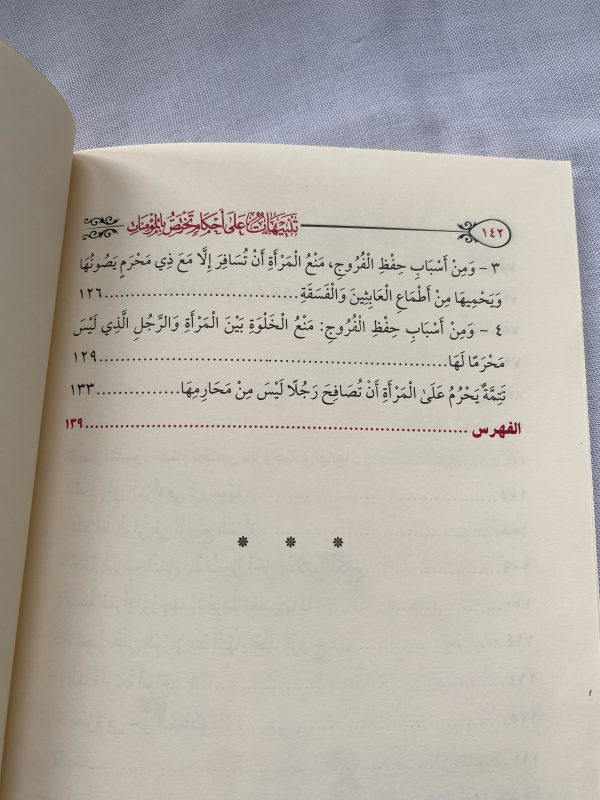 ١٤٢ تَنْبِيهَاتٌ عَلَى أَحْكَامٍ تَخْتَصُّ بِالْمُؤْمِنَاتِ
٣ - وَمِنْ أَسْبَابِ حِفْظِ الْفُرُوجِ، مَنْعُ الْمَرْأَةِ أَنْ تُسَافِرَ إِلَّا مَعَ ذِي مَحْرَمٍ يَصُونُهَا
وَيَحْمِيهَا مِنْ أَطْمَاعِ الْعَابِثِينَ وَالْفَسَقَةِ................................١٢٦
٤ - وَمِنْ أَسْبَابِ حِفْظِ الْفُرُوجِ: مَنْعُ الْخَلْوَةِ بَيْنَ الْمَرْأَةِ وَالرَّجُلِ الَّذِي لَيْسَ
مَحْرَمًا لَهَا................................................................١٢٩
تَتِمَّةٌ يَحْرُمُ عَلَىٰ الْمَرْأَةِ أَنْ تُصَافِحَ رَجُلًا لَيْسَ مِنْ مَحَارِمِهَا...............١٣٣
الفهرس................................................................١٣٩